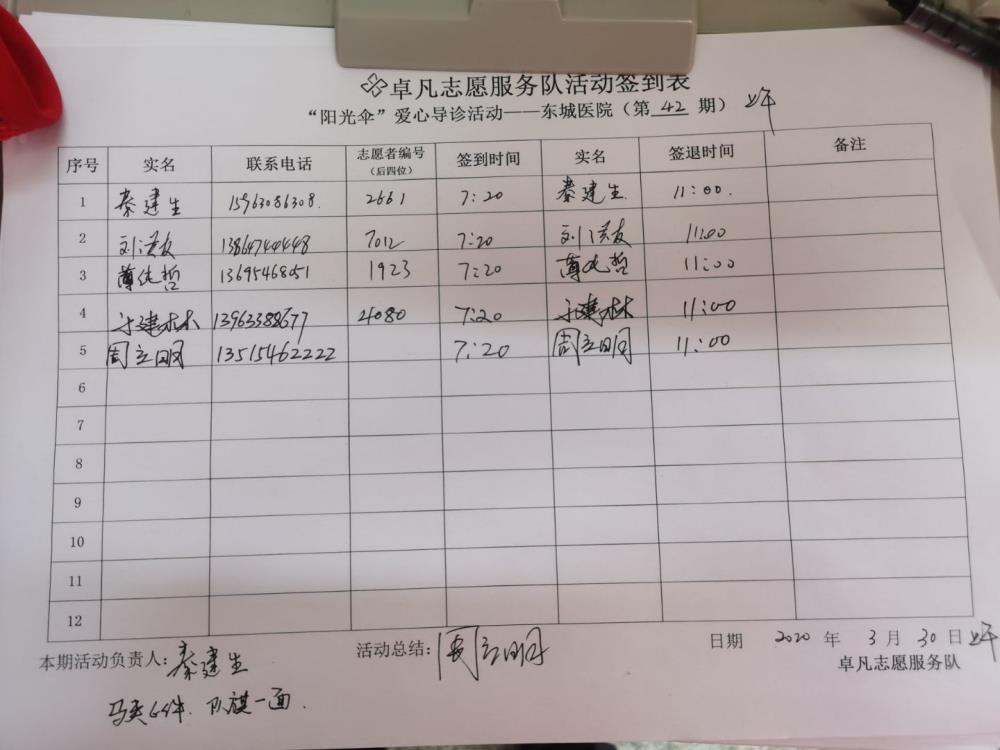 卓凡志愿服务队活动签到表
“阳光伞”爱心导诊活动——东城医院（第 42 期） 上午
序号 实名 联系电话 志愿者编号（后四位） 签到时间 实名 签退时间 备注
1 秦建生 15963086308. 2661 7:20 秦建生 11:00.
2 刘洪友 13864744448 7012 7:20 刘洪友 11:00
3 薄纯哲 13695468051 1923 7:20 薄纯哲 11:00
4 于建林 13963388677 4080 7:20 于建林 11:00
5 周立明 13515462222 7:20 周立明 11:00
6
7
8
9
10
11
12
本期活动负责人：秦建生 活动总结：周立明 日期 2020 年 3 月 30 日 上午
卓凡志愿服务队
马夹6件. 队旗一面.